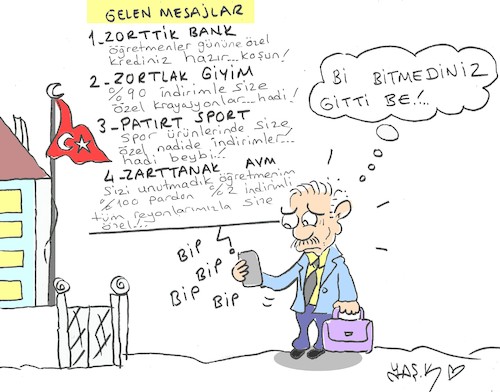 GELEN MESAJLAR
1_ZORTTİK BANK
öğretmenler gününe özel
krediniz hazır... koşun!
2_ ZORTLAK GİYİM
%90 indirimle size
özel krayasyonlar...hadi!
3_PATIRT SPORT
Spor ürünlerinde size
özel nadide indirimler...!
hadi beybi...!
4_ZARTTANAK AVM
Sizi unutmadık öğretmenim
%100 pardon %2 indirimli
tüm reyonlarımızla size
özel...!
Bİ BİTMEDİNİZ
GİTTİ BE!...
BİP
BİP
BİP
BİP
YAŞ.K